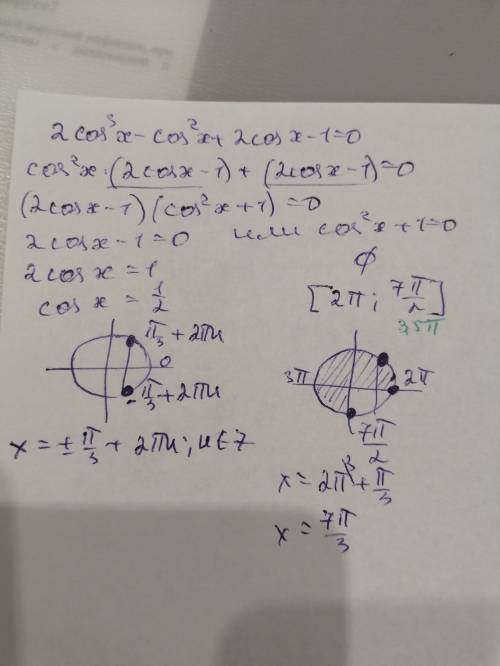 2cos³x - cos²x + 2cosx - 1 = 0
cos²x · (2cosx - 1) + (2cosx - 1) = 0
(2cosx - 1)(cos²x + 1) = 0
2cosx - 1 = 0 или cos²x + 1 = 0
2cos x = 1
∅
cos x = 1/2
[2π; 7π/2]
3,5π
π/3 + 2πn
0
-π/3 + 2πn
3π
2π
7π/2
x = ± π/3 + 2πn; n ∈ Z
x = 2π + π/3
3
x = 7π/3